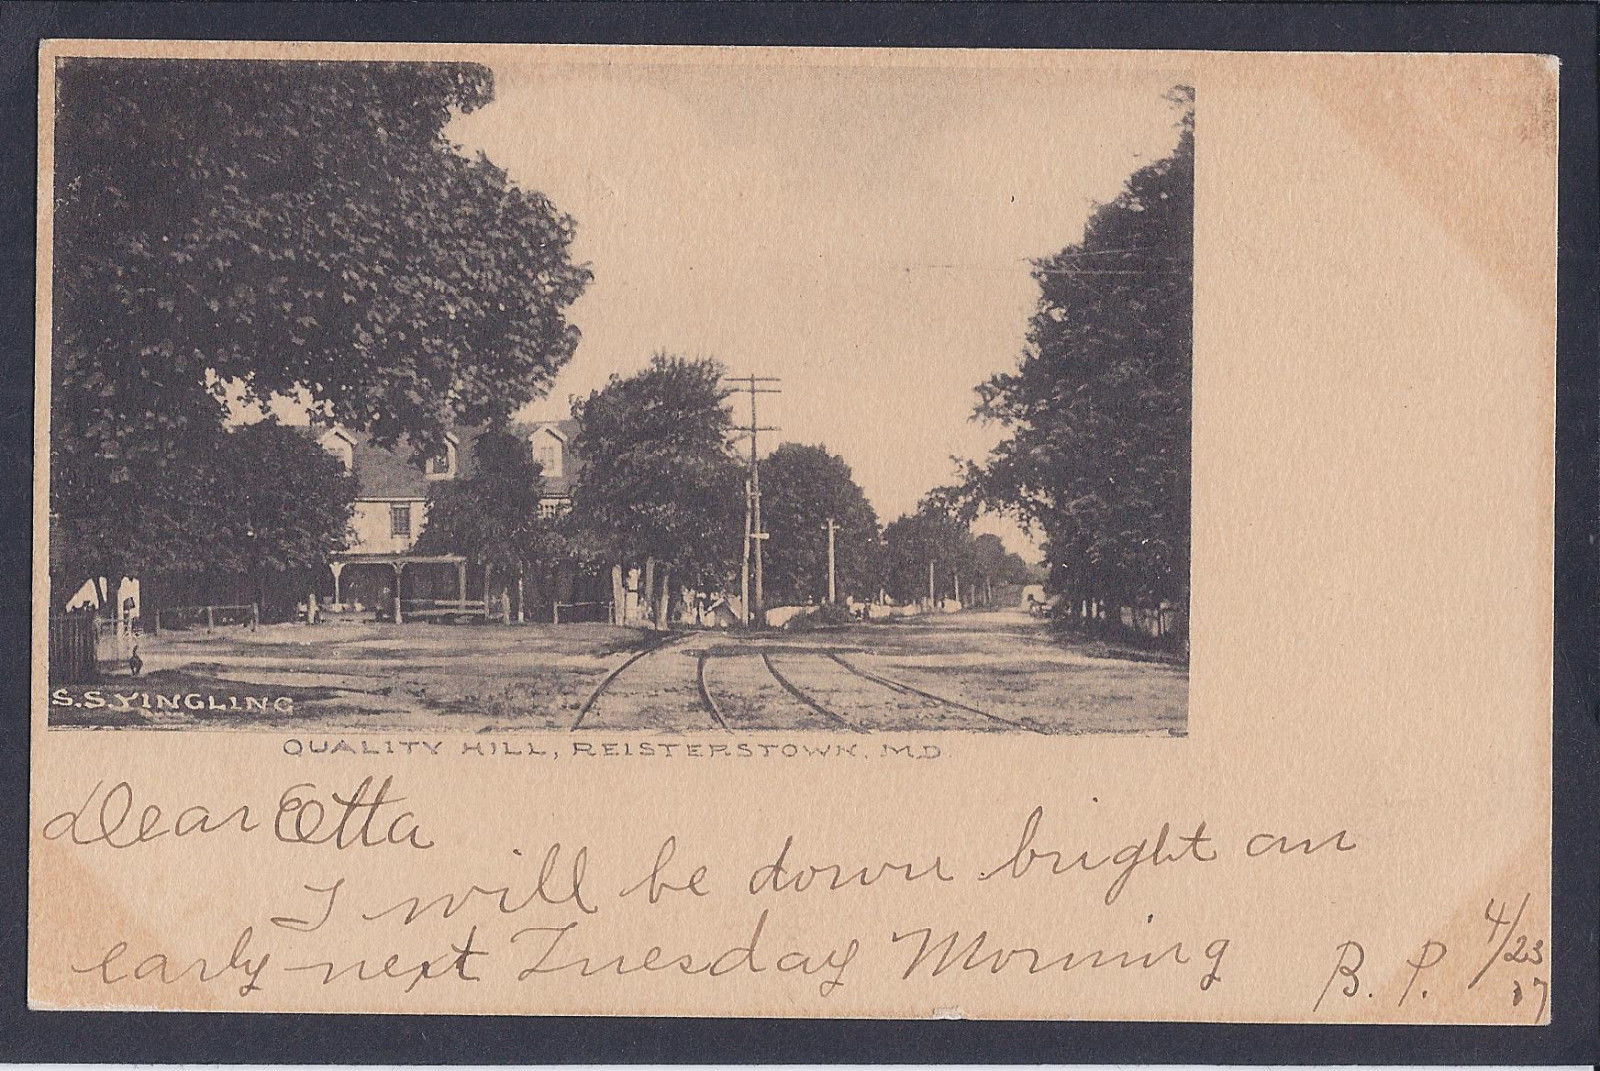 S.S. YINGLING
QUALITY HILL, REISTERSTOWN, MD.
Dear Etta
I will be down bright an
early next Tuesday Morning
B. P. 4/23
07